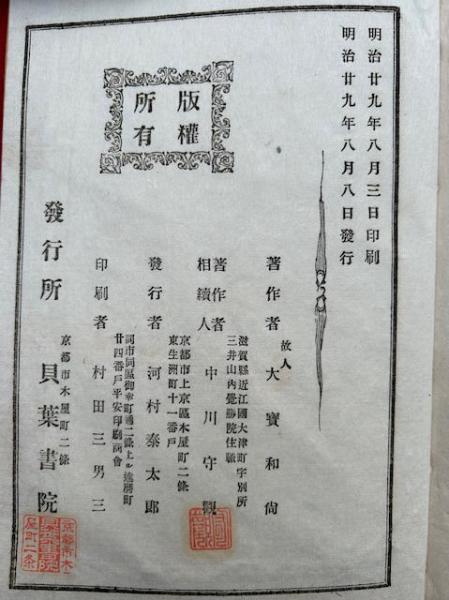 明治廿九年八月三日印刷
明治廿九年八月八日發行
版權
所有
著作者
故人
大寶和尙
滋賀縣近江國大津町字別所
三井山內覺勝院住職
著作者
相續人
中川守觀
京都市上京區木屋町二條
東生洲町十一番戶
發行者
河村泰太郎
同市同區御幸町通二條上ル達磨町
廿四番戶平安印刷商會
印刷者
村田三男三
京都市木屋町二條
發行所
貝葉書院
京都市木
屋町二条